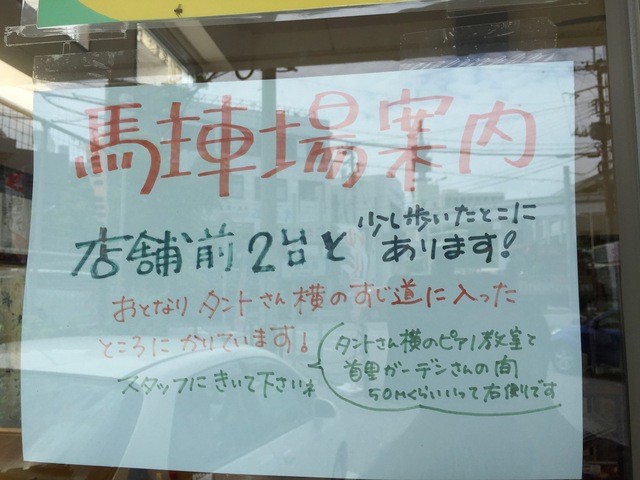 駐車場案内
店舗前2台と 少し歩いたとこに
あります!
おとなりタントさん横のすじ道に入った
ところにかりています!
スタッフにきいて下さいネ
タントさん横のピアノ教室と
首里ガーデンさんの間
50Mくらいいって右側です